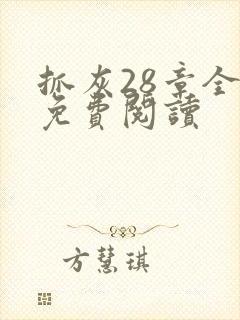 抓灰28章全
免費閱讀
方慧琪